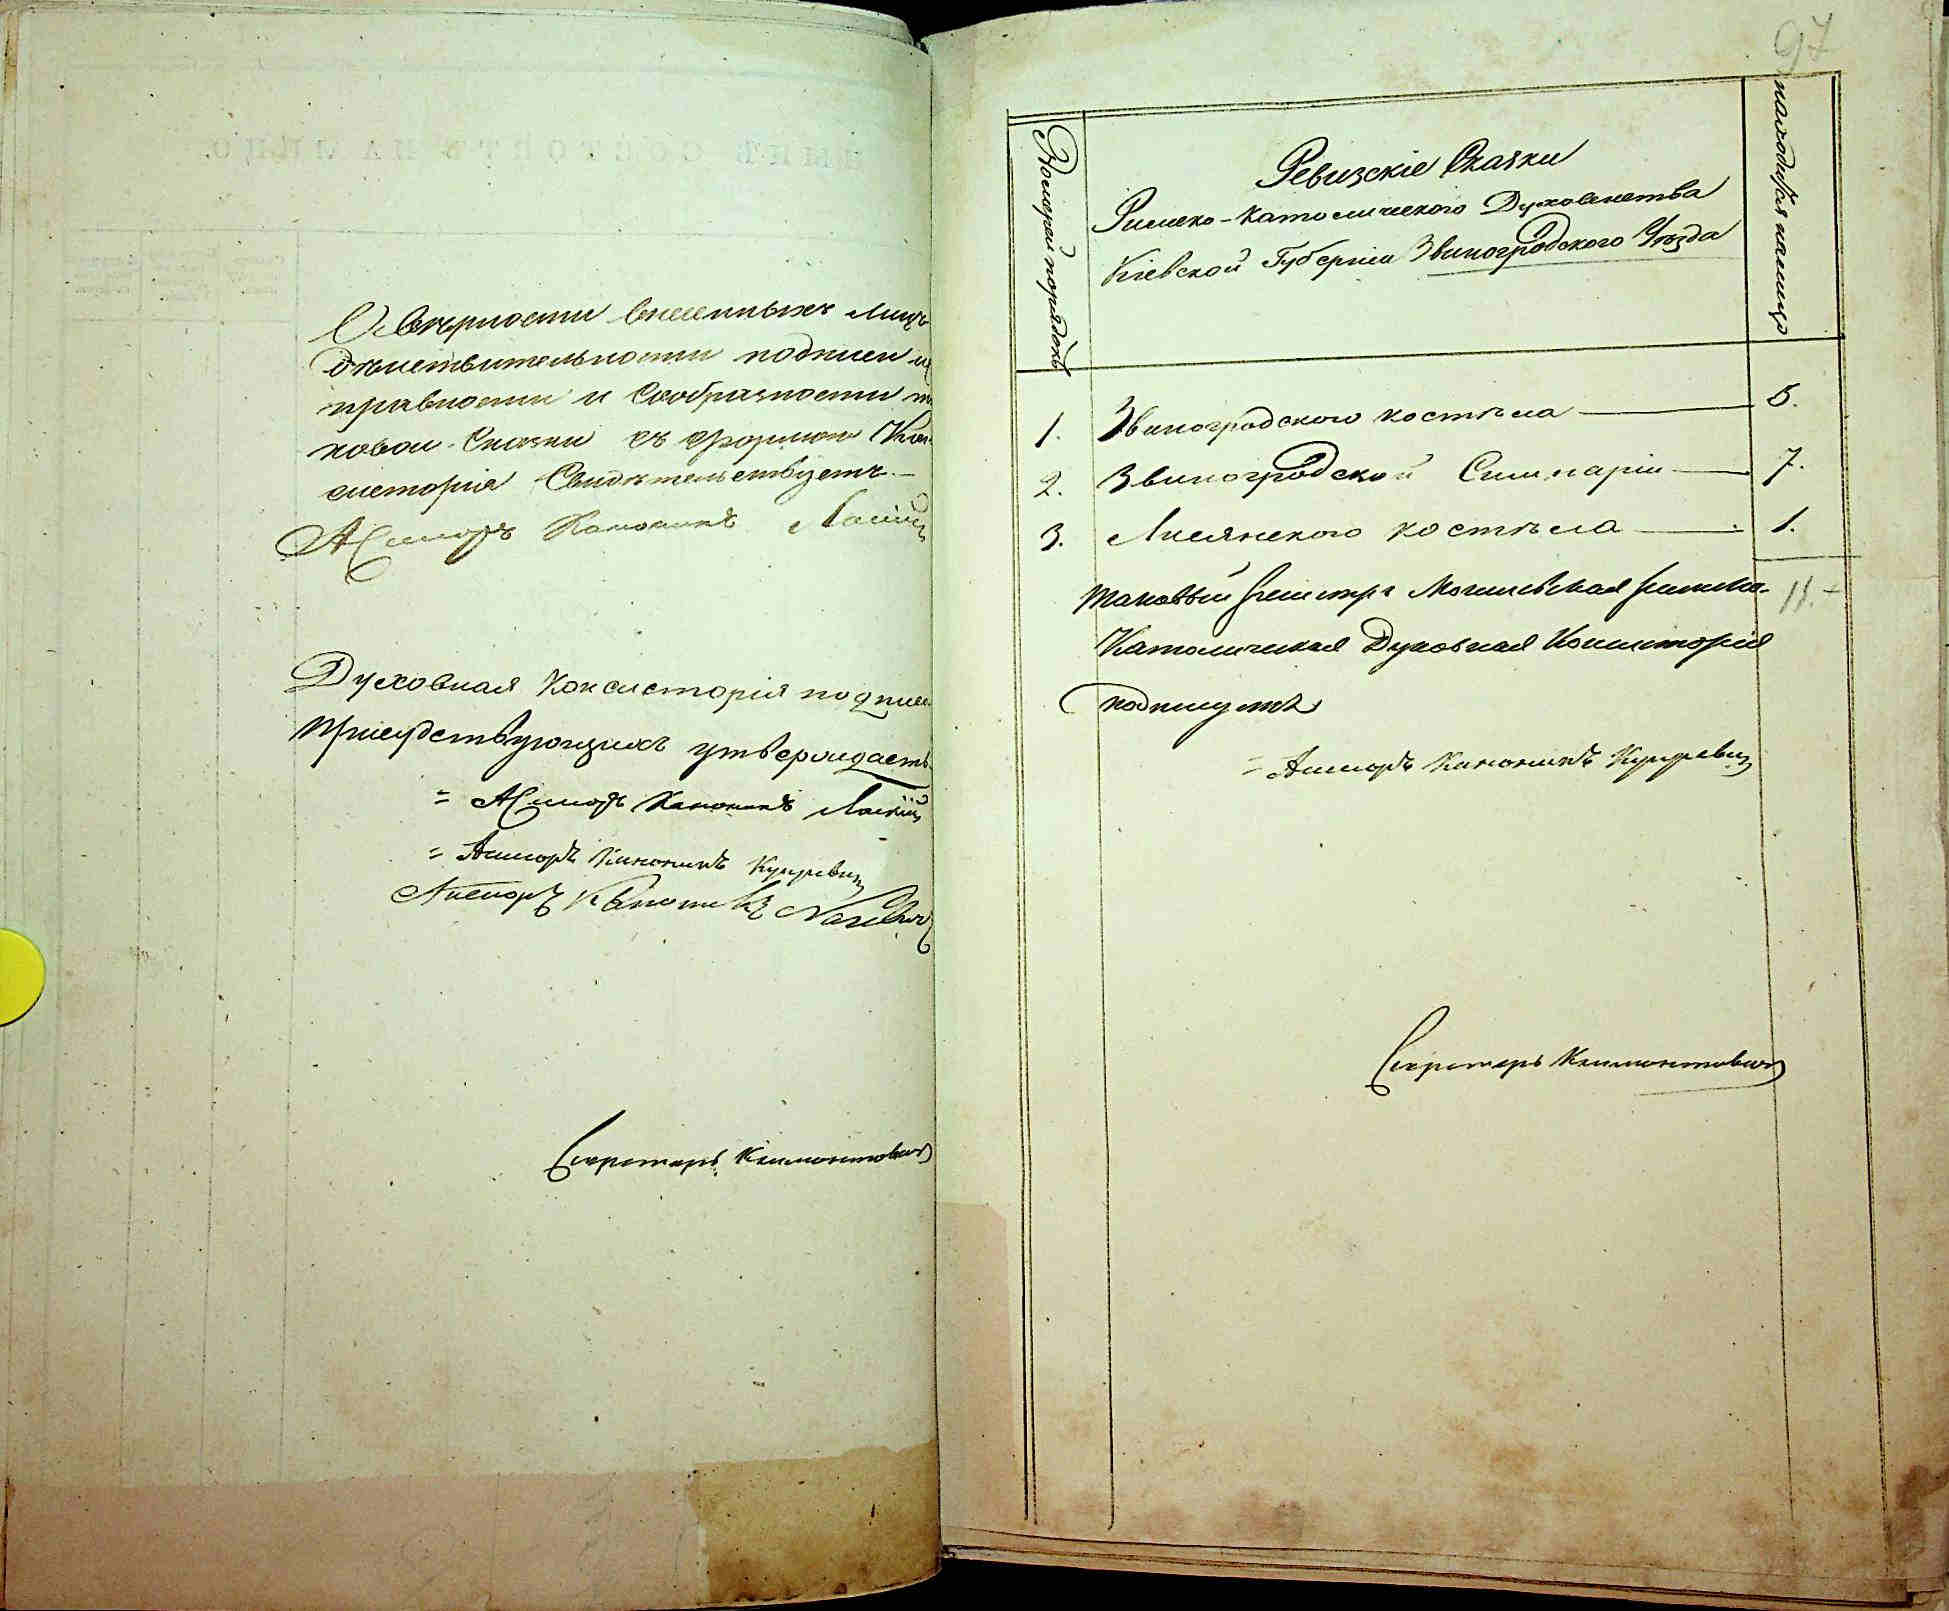 О верности внесенныхъ лицъ
действительности подписи и
правности и сообразности та
ковой Сказки съ формою Кон
систорія Свидѣтельствуетъ.—
Асесоръ Каноникъ
Духовная Консисторія подпись
Присудствующихъ утверждаетъ
= Асесоръ Каноникъ
= Асесоръ Каноникъ
Асесоръ Каноникъ
Секретарь Климонтовичъ
97
Номера порядокъ
Ревизскіе Сказки
Римско-Католическаго Духовенства
Кіевской Губерніи Звиногродского Уѣзда
1. Звиногродского костѣла — 5.
2. Звиногродской Семинаріи — 7.
3. Лисянского костѣла — 1.
Таковый регистръ Могилевская римско- 11.-
Католическая Духовная Консисторія
подписуетъ
= Асесоръ Каноникъ
Секретарь Климонтовичъ